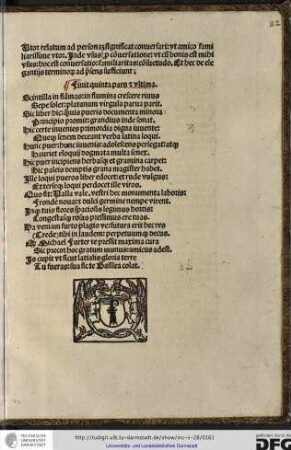 Utor relatum ad personas significat conversari: ut amico fami
liarissime utor. Inde usus, pro conversatione: ut est bonis est mihi
usus: hoc est conversatio: familiaritas: consuetudo. Et hec de ele
gantijs terminorum ad presens sufficiunt.
Finit quinta pars et ultima.
Scintilla in flammas: in flumina crescere rivus
Sepe solet: platanum virgula parva parit.
Sic liber hic: quis pueris documenta minora
Principio promit: grandius inde sonat.
Hic certe invenies primordia digna iuvente:
Que senem deceant verba latina loqui.
Hunc puer: hunc iuvenis: adolescens perlegat: atque
Hauriet eloquij dogmata multa senex.
Hic puer incipiens herbas et gramina carpet:
Hic paleis demptis grana magister habet.
Ille loqui pueros liber edocet: et rude vulgus:
Exteros loqui perdocet ille viros.
Quo fit: Valla vale. vestri hec monumenta laboris
Fronde novat: dulci germine nempe virent.
Inque tuis flores spaciosis legimus hortis
Congestas rosas
Da veniam furto plagio
Crede: tibi in laudem: perpetuumque decus.
Michael Furter te pressit maxima cura
Sic precor hoc gratum munus: amicus adest.
Is cupit ut sicut latialis gloria terre
Tu fueras: sua sic te Basilea colat.
82
TECHNISCHE UNIVERSITÄT DARMSTADT
http://tudigit.ulb.tu-darmstadt.de/show/inc-ii-28/0161
Universitäts- und Landesbibliothek Darmstadt
gefördert durch die
DFG